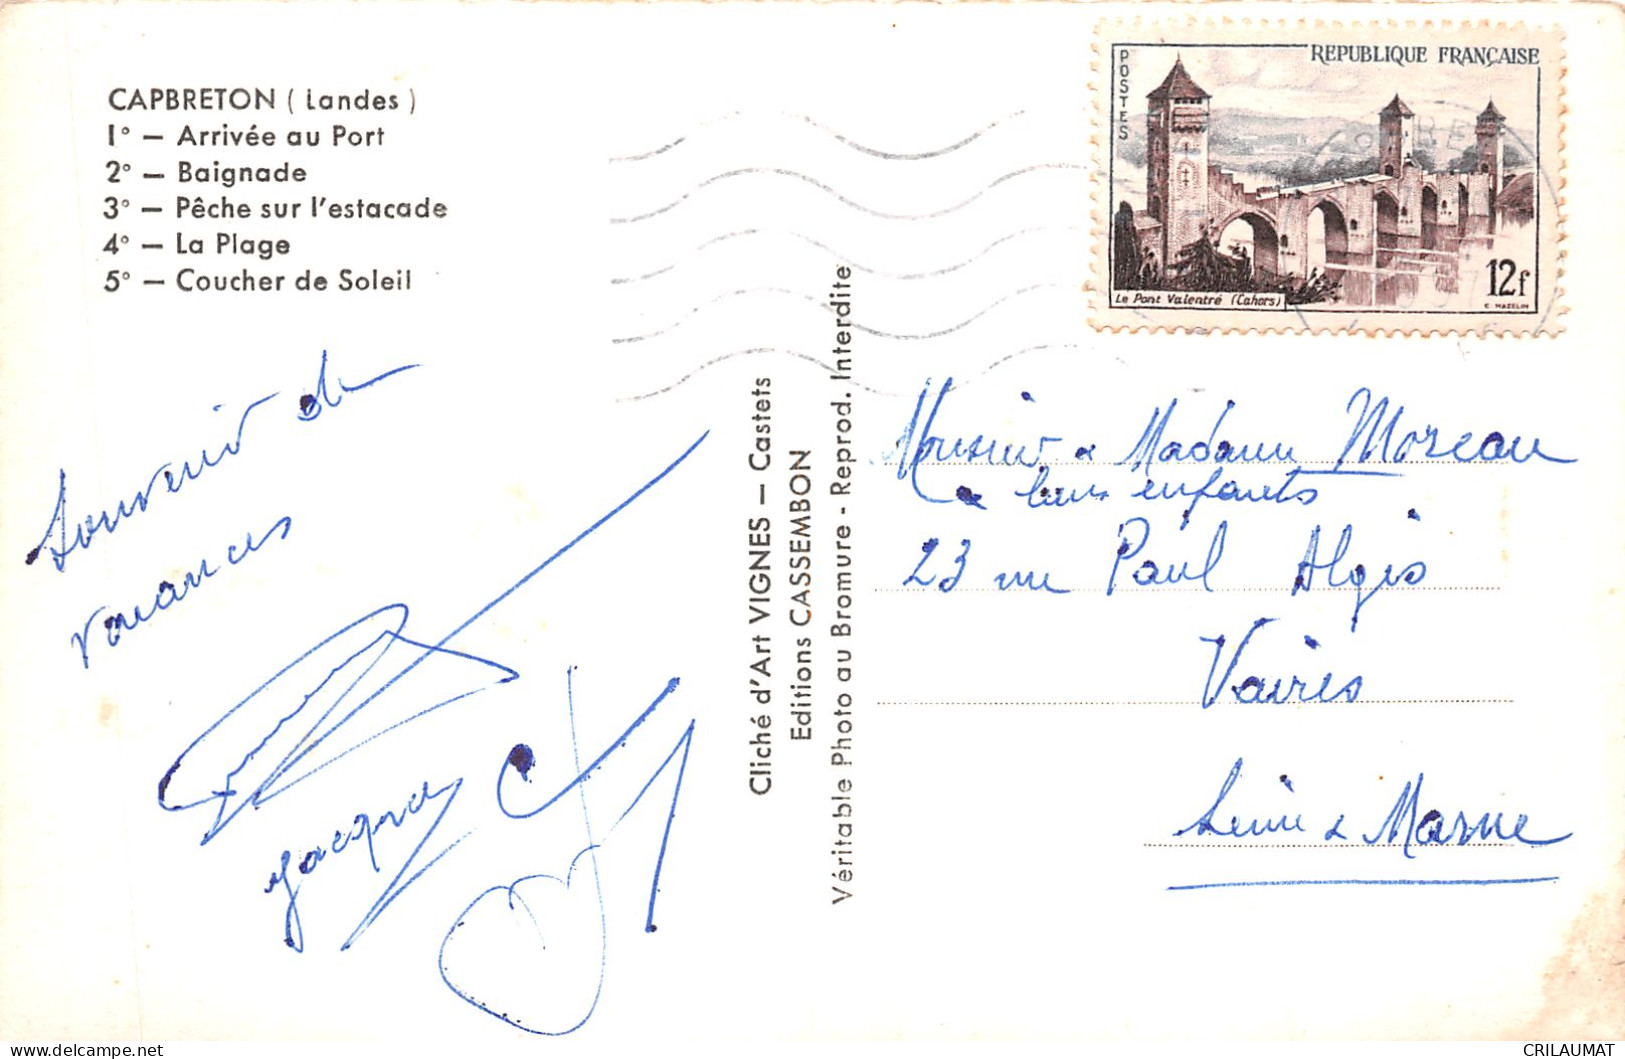 CAPBRETON ( Landes )
1° — Arrivée au Port
2° — Baignade
3° — Pêche sur l'estacade
4° — La Plage
5° — Coucher de Soleil
POSTES
REPUBLIQUE FRANÇAISE
Le Pont Valentré (Cahors)
12f
C. MAZELIN
Souvenir de
vacances
Jacques
Cliché d'Art VIGNES — Castets
Editions CASSEMBON
Véritable Photo au Bromure - Reprod. Interdite
Monsieur & Madame Moreau
& leurs enfants
23 rue Paul Algis
Vaires
Seine & Marne
CRILAUMAT